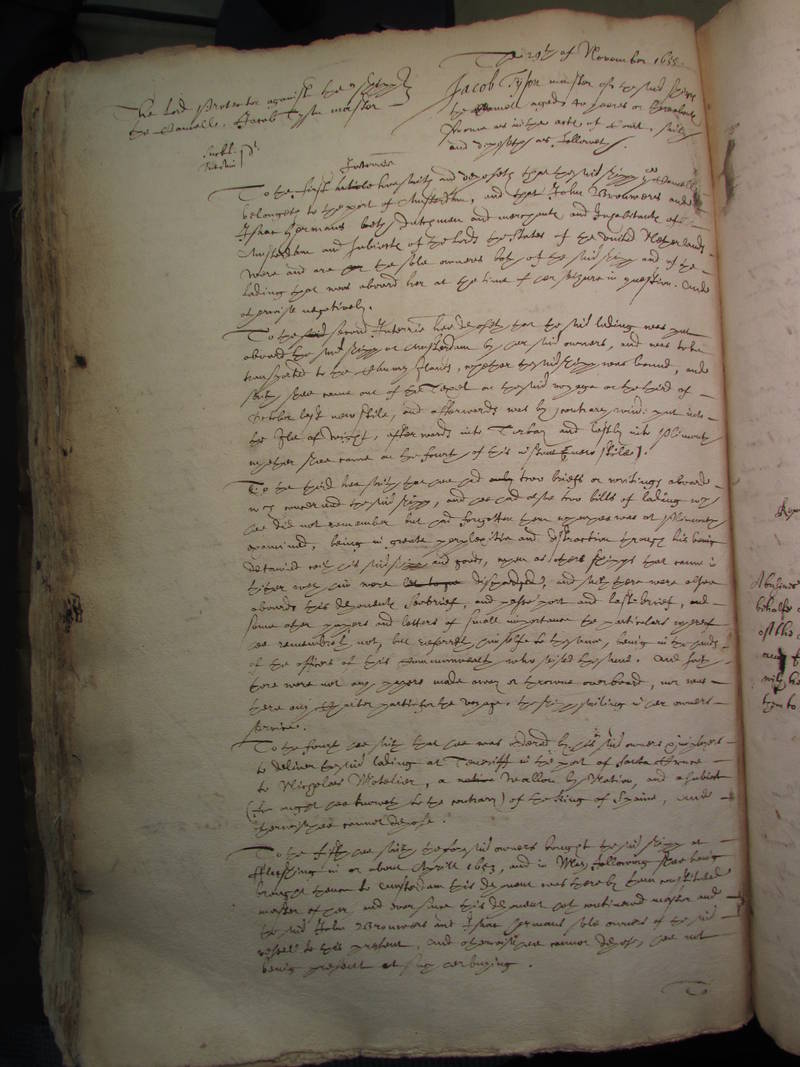 The 29th of November 1655
The Lord Protector against the shipp
the Camell, Jacob Tyson master
Jacob Tyson master of the said shipp
the Camell aged 40 yeares or thereabouts
sworne as in the acts of Court, saith
and deposeth as followeth.
Interrie
To the first article hee saith and deposeth that the said shipp the Camell
belongeth to the port of Amsterdam, and that John Brouwers and
Isaac Hermans both dutchmen and merchants and Inhabitants of
Amsterdam and subiects of the Lords the States of the United Netherlands
were and are the sole owners both of the said shipp and of the
lading that was aboard her at the time of her seizure in question. And
otherwise negatively.
To the said second Interrie hee deposeth that the said lading was put
aboard the said shipp at Amsterdam by her said owners, and was to be
transported to the Canary Islands, whither the said shipp was bound, and
saith shee came out of the Texel on the said voyage on the third of
October last new stile, and afterwards was by contrary winds put into
the Ile of Wight, afterwards into Torbay and lastly into Plimouth
whither shee came on the fourth of this instant new stile.
To the third hee saith that hee had only two briefs or writings aboard
which concerned the said shipp, and hee had also two bills of lading which
hee did not remember but had forgotten then when hee was at Plimouth
examined, being in greate perplexitie and distraction through his being
detained with his said shipp and goods, when as others shipps that came in
thither with him were dispatched, and saith there were alsoe
aboard this deponents seabrief, and passeport and last brief, and
some other papers and letters of small importance the particulars whereof
hee remembreth not, but referreth himselfe to the same, being in the hands
of the officers of this commonwealth who seized the same. And saith
there were not any papers made away or throwne overboard, nor was
there any charter partie for the voyage, the shipp sailing in her owners
service.
To the fourth hee saith that hee was ordered by his said owners
to deliver the said lading at Teneriff in the port of Santa Cruce
to Nicholas Motelier, a native Wallon by Nation, and a subiect
(for ought hee knoweth to the contrary) of the King of Spaine, And
otherwise hee cannot depose.
To the fifth hee saith the foresaid owners bought the said shipp at
fflushing in or about Aprill 1653, and in May following shee being
brought thence to Amsterdam this deponent was there by them constituted
master of her and ever since this deponent hath continued master and
the said John Brouwers and Isaac Hermans sole owners of the said
vessell to this present, And otherwise hee cannot depose, hee not
being present at such her buying.
To